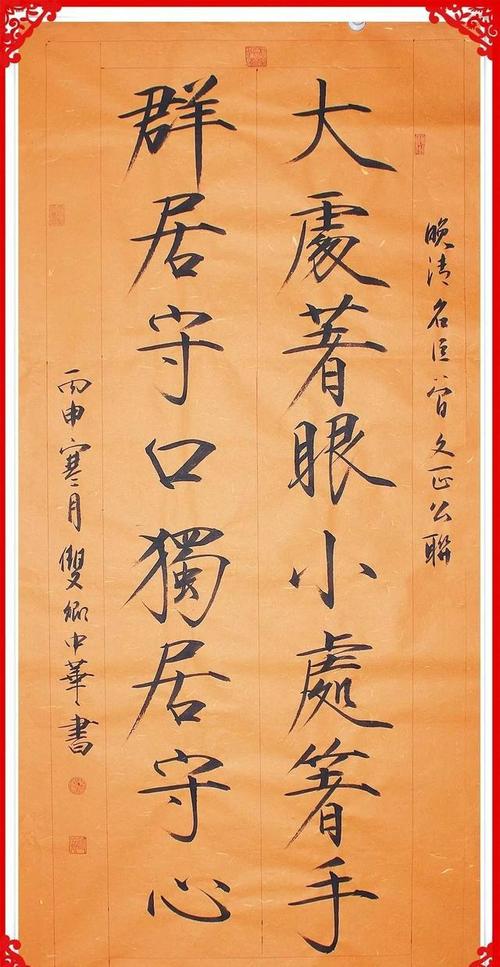 晚清名臣曾文正公聯
大處著眼小處著手
群居守口獨居守心
丙申寒月雙鄉中華書